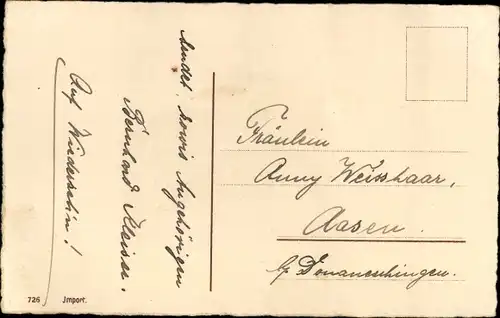 sendet, sowie Angehörigen
Bernhard Kleiser.
Auf Wiedersehn!
Fräulein
Anny Weisshaar,
Aasen.
b/ Donaueschingen.
726 Import.